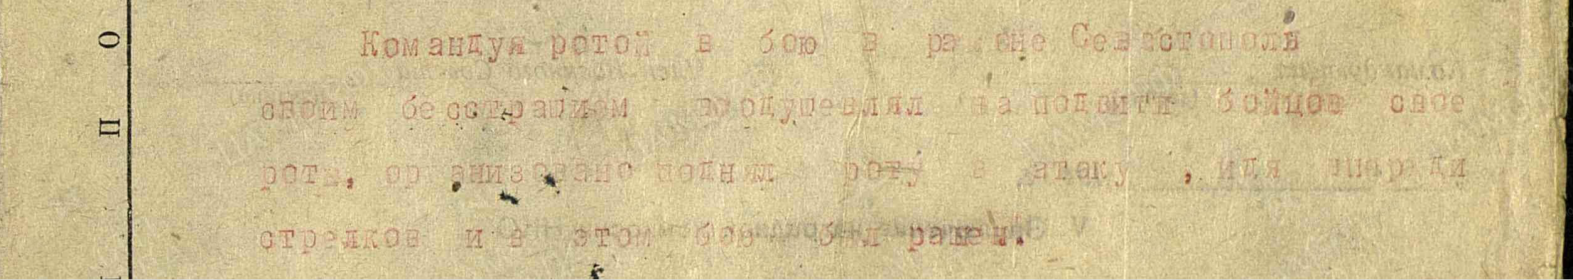 Командуя ротой в бою в районе Севастополя
своим бесстрашием воодушевлял на подвиги бойцов свое
роты, организовано поднял роту в атаку , идя впереди
стрелков и в этом бою был ранен.
П О